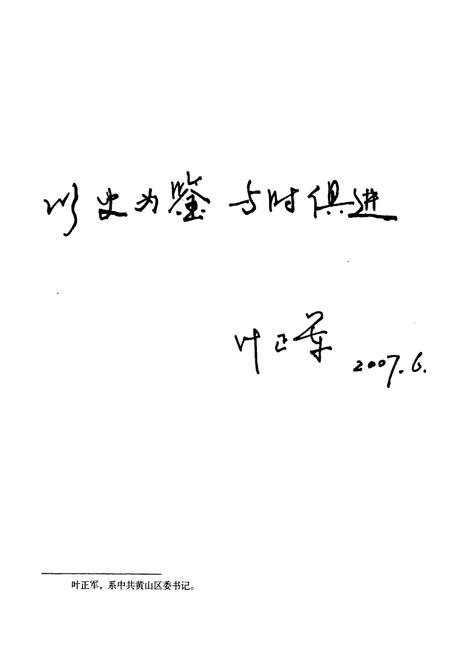 以史为鉴 与时俱进
叶正军
2007.6.
叶正军，系中共黄山区委书记。